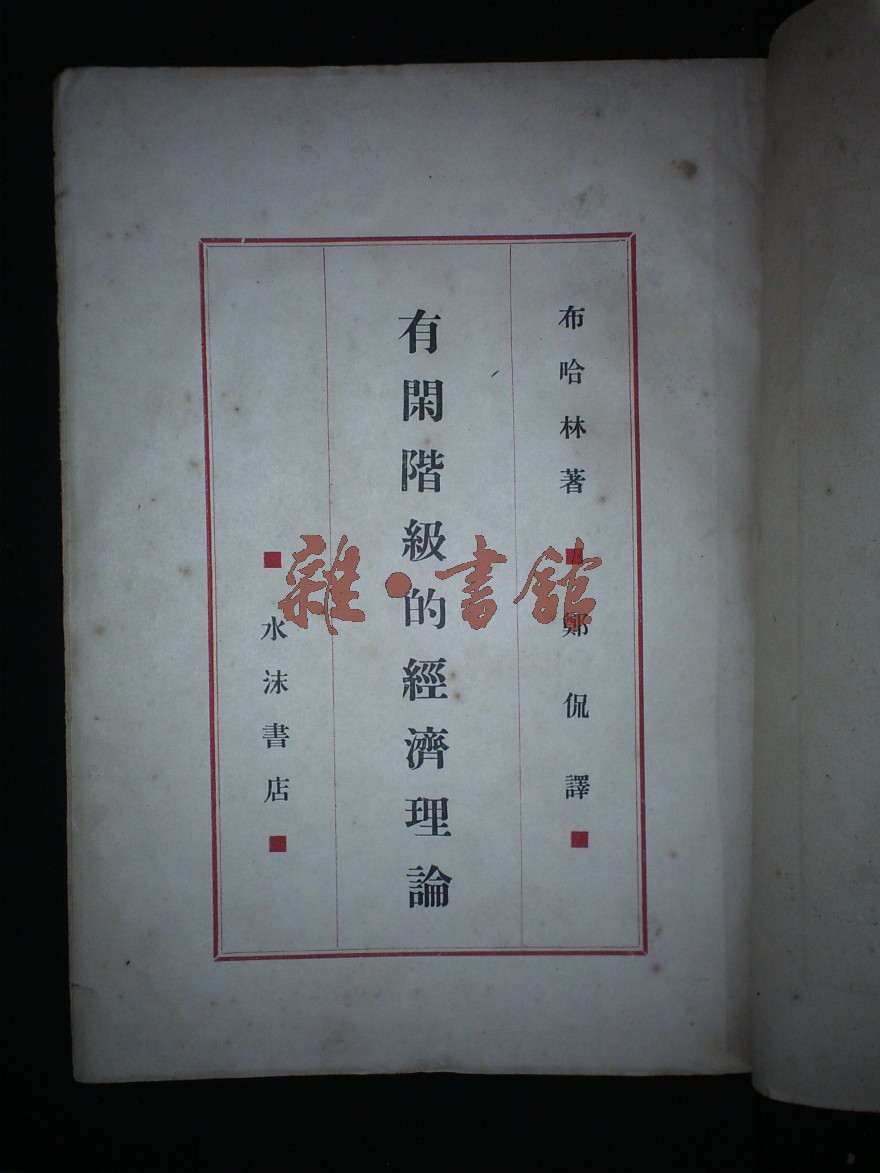 布哈林著■鄭侃譯■
有閑階級的經濟理論
■水沫書店■
雜·書館